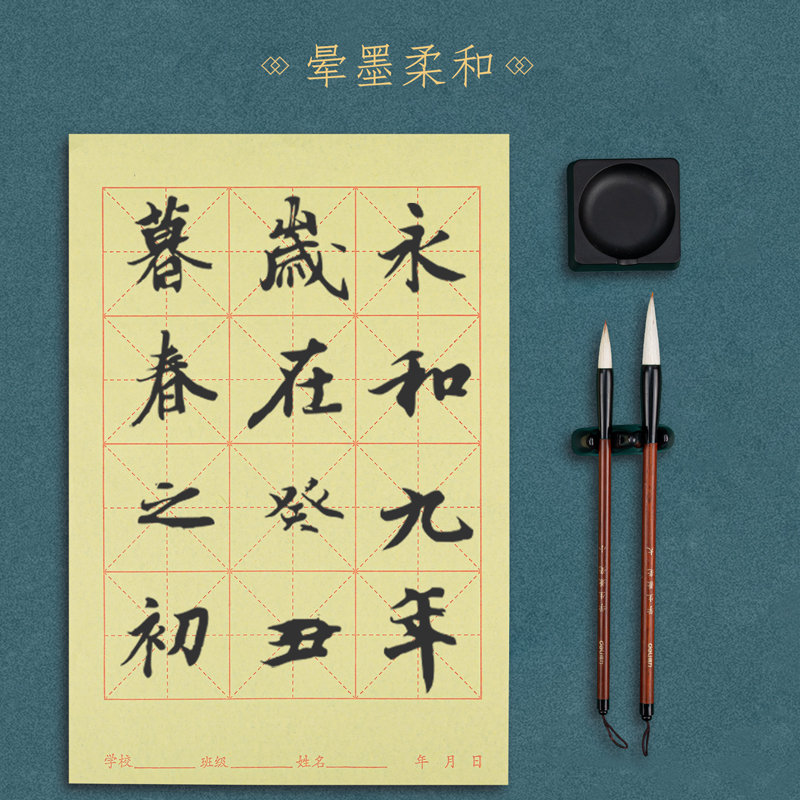 晕墨柔和
永和九年
歲在癸丑
暮春之初
学校 班级 姓名 年 月 日